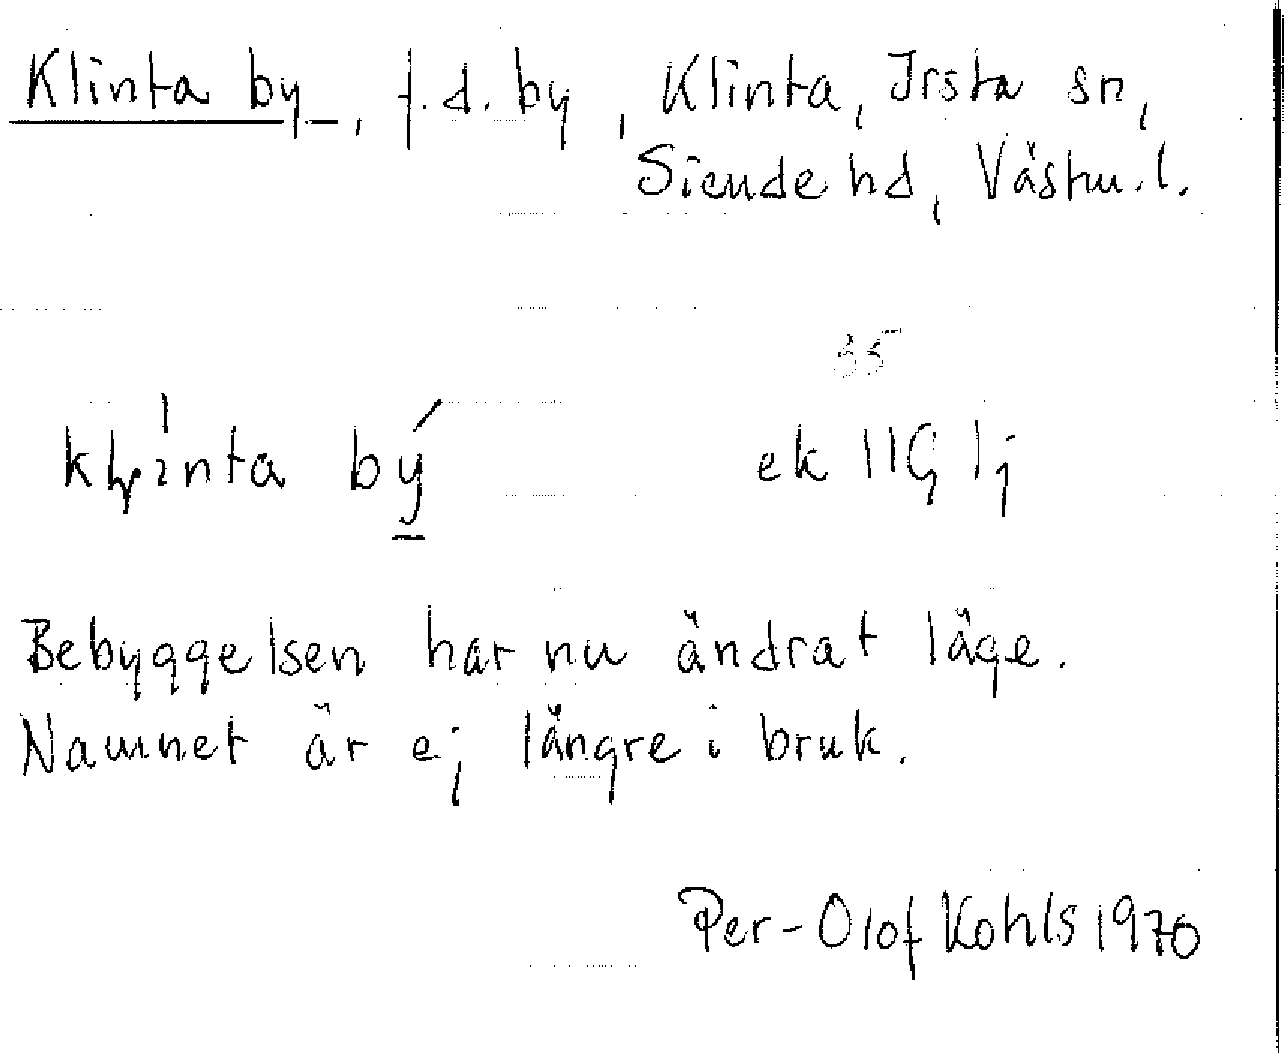 Klinta by, f.d. by, Klinta, Irsta sn,
Siende hd, Västm.l.
35
bý ek 11G 1j
Bebyggelsen har nu ändrat läge.
Namnet är ej längre i bruk.
Per-Olof Kohls 1970